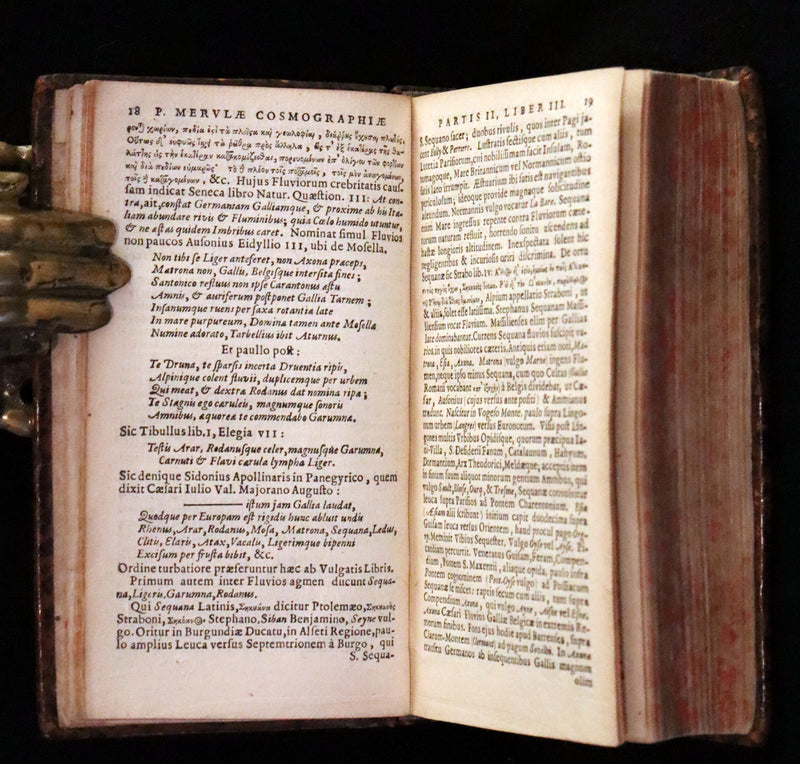 18 P. MERVLÆ COSMOGRAPHIÆ
χωρίων, πεδία
&c. Hujus Fluviorum crebritatis caus-
sam indicat Seneca libro Natur. Quæstion. III: At con-
tra, ait, constat Germaniam Galliamque, & proxime ab his Ita-
liam abundare rivis & Fluminibus; quia Cœlo humido utuntur,
& ne æstas quidem Imbribus caret. Nominat simul Fluvios
non paucos Ausonius Eidyllio III, ubi de Mosella.
Non tibi se Liger anteferet, non Axona præceps,
Matrona non, Gallis, Belgisque intersita fines;
Santonico refluus non ipse Carantonus æstu
Amnis, & auriferum postponet Gallia Tarnem;
Insanumque ruens per saxa rotantia late
In mare purpureum, Domina tamen ante Mosella
Numine adorato, Tarbellius ibit Aturnus.
Et paullo post:
Te Druna, te sparsis incerta Druentia ripis,
Alpinique colent fluvii, duplicemque per urbem
Qui meat, & dextra Rodanus dat nomina ripa;
Te Stagnis ego cæruleis, magnumque sonoris
Amnibus, æquorea te commendabo Garumna.
Sic Tibullus lib. I, Elegia VII:
Testis Arar, Rodanusque celer, magnusque Garumna,
Carnuti & Flavi cærula lympha Liger.
Sic denique Sidonius Apollinaris in Panegyrico, quem
dixit Cæsari Iulio Val. Majorano Augusto:
istum jam Gallia laudat,
Quodque per Europam est rigidis hunc abluit undis
Rhenus, Arar, Rodanus, Mosa, Matrona, Sequana, Ledus,
Clitis, Elaris, Atax, Vacalu, Ligerimque bipenni
Excisum per frusta bibit, &c.
Ordine turbatiore præferuntur hæc ab Vulgatis Libris.
Primum autem inter Fluvios agmen ducunt Sequa-
na, Ligeris, Garumna, Rodanus.
Qui Sequana Latinis, Σηκοάνα dicitur Ptolemæo, Σηκοανὸς
Straboni, Stephano, Siban Benjamino, Seyne vul-
go. Oritur in Burgundiæ Ducatu, in Alseti Regione, pau-
lo amplius Leuca versus Septemtrionem à Burgo, qui
S. Sequa-
PARTIS II, LIBER III. 19
S. Sequano sacer; duobus rivulis, quos inter Pagi ja-
cent Esly & Perrere. Lustratis sectisque cum aliis, tum
Lutetia Parisiorum, cui nobilissimam facit Insulam, Ro-
tomagoque, Mare Britannicum vel Normannicum ostio
fatis lano irrumpit. Æstuarium ibi satis est navigantibus
periculosum; ideoque provide magnaque solicitudine
adeundum. Normannis vulgo vocatur La Bare. Sequanæ
enim Mare ingressus repente contra Fluviorum cæte-
rorum naturam refluit, horrendo sonitu ascendens ad
hastæ longioris altitudinem. Inexspectata solent hic
negligentibus & incuriosis oriri discrimina. De ortu
Sequanæ sic Strabo lib. IV:
Alpium appellatio Straboni, ut
& aliis, solet esse latissima. Stephanus Sequanam Massi-
liensium vocat Fluvium. Massilienses olim per Gallias
late dominabantur. Currens Sequana fluvios suscipit va-
rios, in quis nobiliores cæteris. Antiquis etiam noti, Ma-
trona, Esia, Axona. Matrona vulgo Marne ingens Flu-
men, neque ipso minus Sequana, cum quo Celtas
Romani vocabant à Belgis dividebat, ut Cæ-
sar, Ausonius (cujus versus ante positi) & Ammianus
tradunt. Nascitur in Vogeso Monte, paulo supra Lingo-
num urbem (Langres) versus Euronotum. Visis post Lin-
gones multis Vrbibus Opidisque, quorum præcipua Ia-
ni-Villa, S. Desiderii Fanum, Catalaunum, Habyum,
Dormantium, Ara Theodorici, Meldæque, acceptis item
in sinum suum aliquot minorum gentium Amnibus, qui
vulgo Sault, Blaise, Ourq, & Tresme, Sequanæ connubitur
leuca supra Parisios ad Pontem Charentonium. Esia
(Æsiam alii scribunt) initium capit duodecima supra
Guisam leuca versus Orientem, haud procul pago
Meminit Vibius Sequester. Vulgo Oyse vel Ayse. Pi-
cardiam percurrit. Veneratus Guisam, Feram, Compen-
dium, Pontem S. Maxentii, aliaque opida, paulo infra
Pontem cognominem (Pont-Oyse vulgo) ad Possiacum
Sequanæ se miscet: captis secum cum aliis, tum supra
Compendium Axona, qui vulgo Ayne, Aisne vel Esne.
Axona Cæsari Fluvius Galliæ Belgicæ in extremis Re-
morum finibus. Fons ejus hodie apud Barrenses, supra
Clarum-Montem (Clermont) ad pagum In Axona
transitu Germanos ab insequentibus Gallis magnum
olim